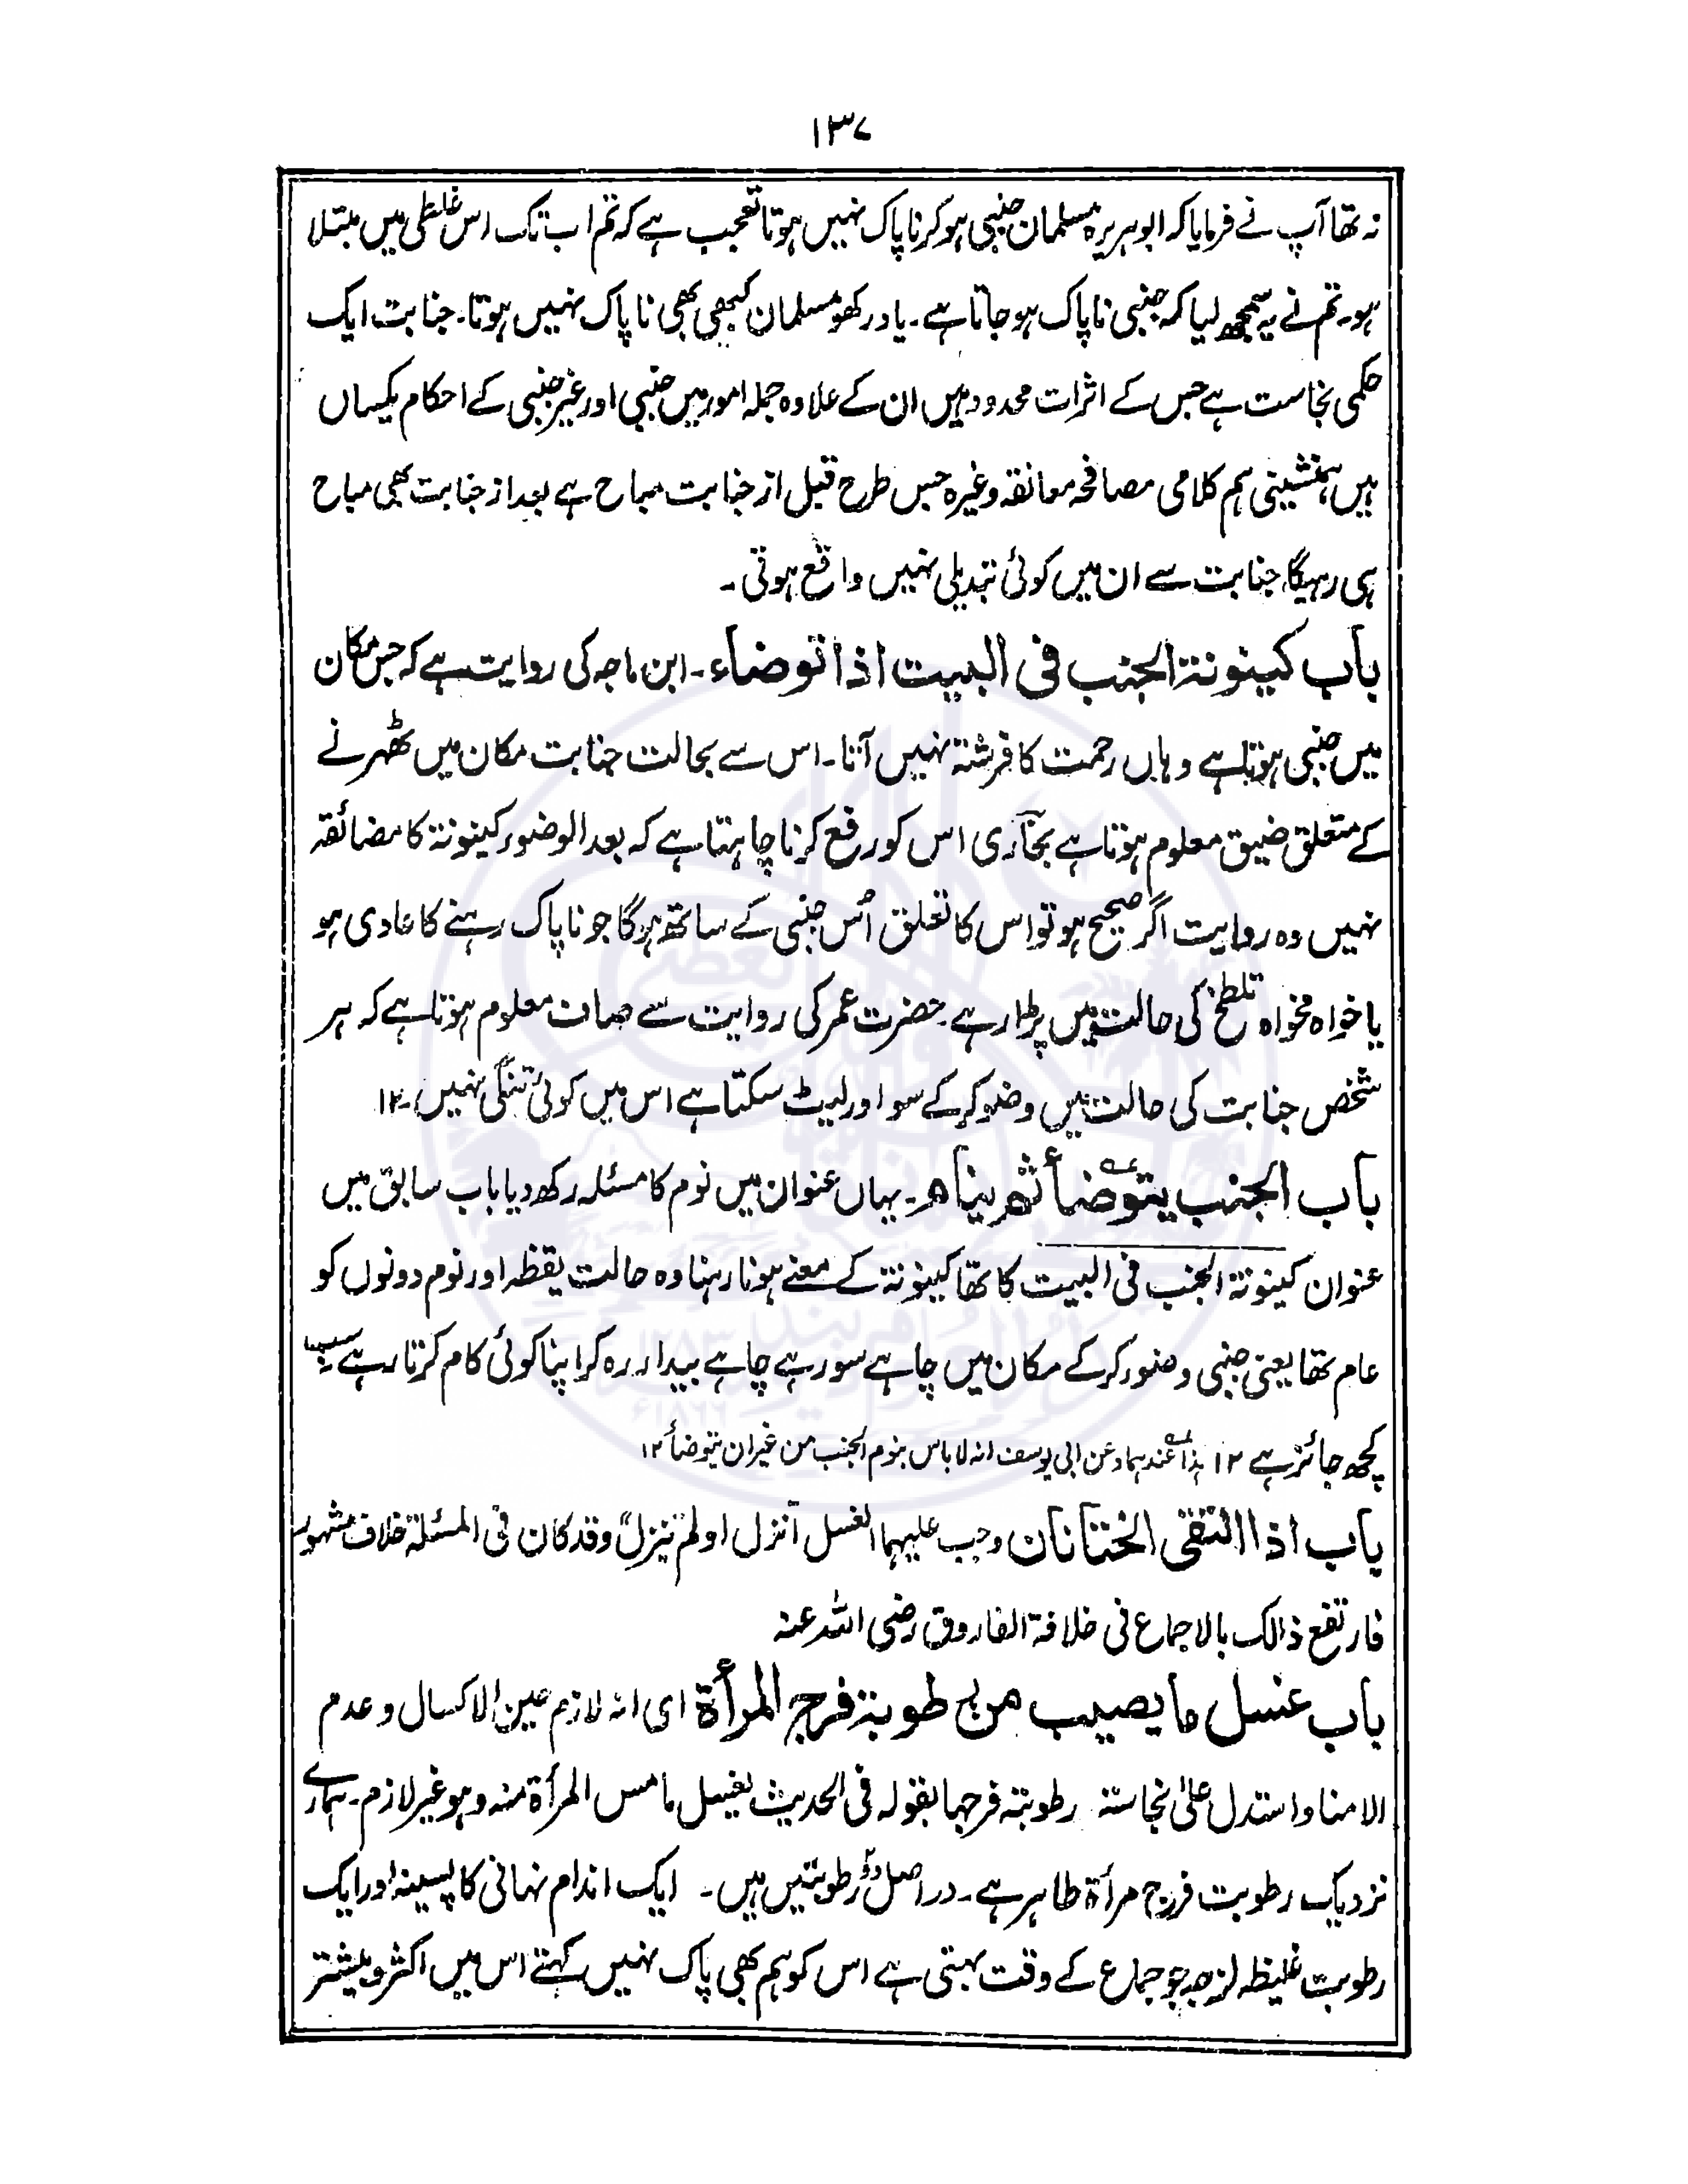 ۱۳۷
نہ تھا آپ نے فرمایا کہ ابوہریرہ مسلمان جنبی ہوکر ناپاک نہیں ہوتا تعجب ہے کہ تم اب تک اس غلطی میں مبتلا
ہو۔ تم نے یہ سمجھ لیا کہ جنبی ناپاک ہو جاتا ہے۔ یاد رکھو مسلمان کبھی بھی ناپاک نہیں ہوتا۔ جنابت ایک
حکمی نجاست ہے جس کے اثرات محدود ہیں ان کے علاوہ جملہ امور میں جنبی اور غیر جنبی کے احکام یکساں
ہیں ہمنشینی ہم کلامی مصافحہ معانقہ وغیرہ جس طرح قبل از جنابت مباح ہے بعد از جنابت بھی مباح
ہی رہیگا، جنابت سے ان میں کوئی تبدیلی نہیں واقع ہوتی۔
باب کینونۃ الجنب فی البیت اذا توضاء۔ ابن ماجہ کی روایت ہے کہ جس مکان
میں جنبی ہوتا ہے وہاں رحمت کا فرشتہ نہیں آتا۔ اس سے بحالت جنابت مکان میں ٹھہرنے
کے متعلق ضیق معلوم ہوتا ہے بخاری اس کو رفع کرنا چاہتا ہے کہ بعد الوضور کینونۃ کا مضائقہ
نہیں وہ روایت اگر صحیح ہو تو اس کا تعلق اُس جنبی کے ساتھ ہوگا جو ناپاک رہنے کا عادی ہو
یا خواہ مخواہ تلطخ کی حالت میں پڑا رہے۔ حضرت عمر کی روایت سے صاف معلوم ہوتا ہے کہ ہر
شخص جنابت کی حالت میں وضو کرکے سو اور لیٹ سکتا ہے اس میں کوئی تنگی نہیں۔ ۱۲
باب الجنب یتوضأ ثم ینام۔ یہاں عنوان میں نوم کا مسئلہ رکھ دیا باب سابق میں
عنوان کینونۃ الجنب فی البیت کا تھا کینونۃ کے معنے ہونا رہنا وہ حالت یقظہ اور نوم دونوں کو
عام تھا یعنی جنبی وضور کرکے مکان میں چاہے سو رہے چاہے بیدار رہ کر اپنا کوئی کام کرتا رہے سب
کچھ جائز ہے ۱۲ ہذا عندہما وعن ابی یوسف انہ لا باس بنوم الجنب من غیر ان یتوضأ ۱۲
باب اذا التقی الختانان وجب علیہما الغسل انزل او لم ینزل وقد کان فی المسئلۃ خلاف مشہور
فارتفع ذالک بالاجماع فی خلافۃ الفاروق رضی اللہ عنہ
باب غسل ما یصیب من رطوبۃ فرج المرأۃ ای انہ لازم عین الاکسال و عدم
الامنا واستدل علیٰ نجاستہ رطوبتہ فرجہا بقولہ فی الحدیث یغسل ما مس المرأۃ منہ وہو غیر لازم۔ ہمارے
نزدیک رطوبت فرج مرأۃ طاہر ہے۔ دراصل دو رطوبتیں ہیں۔ ایک اندام نہانی کا پسینہ اور ایک
رطوبت غلیظہ لزجہ جو جماع کے وقت بہتی ہے اس کو ہم بھی پاک نہیں کہتے اس میں اکثر وبیشتر